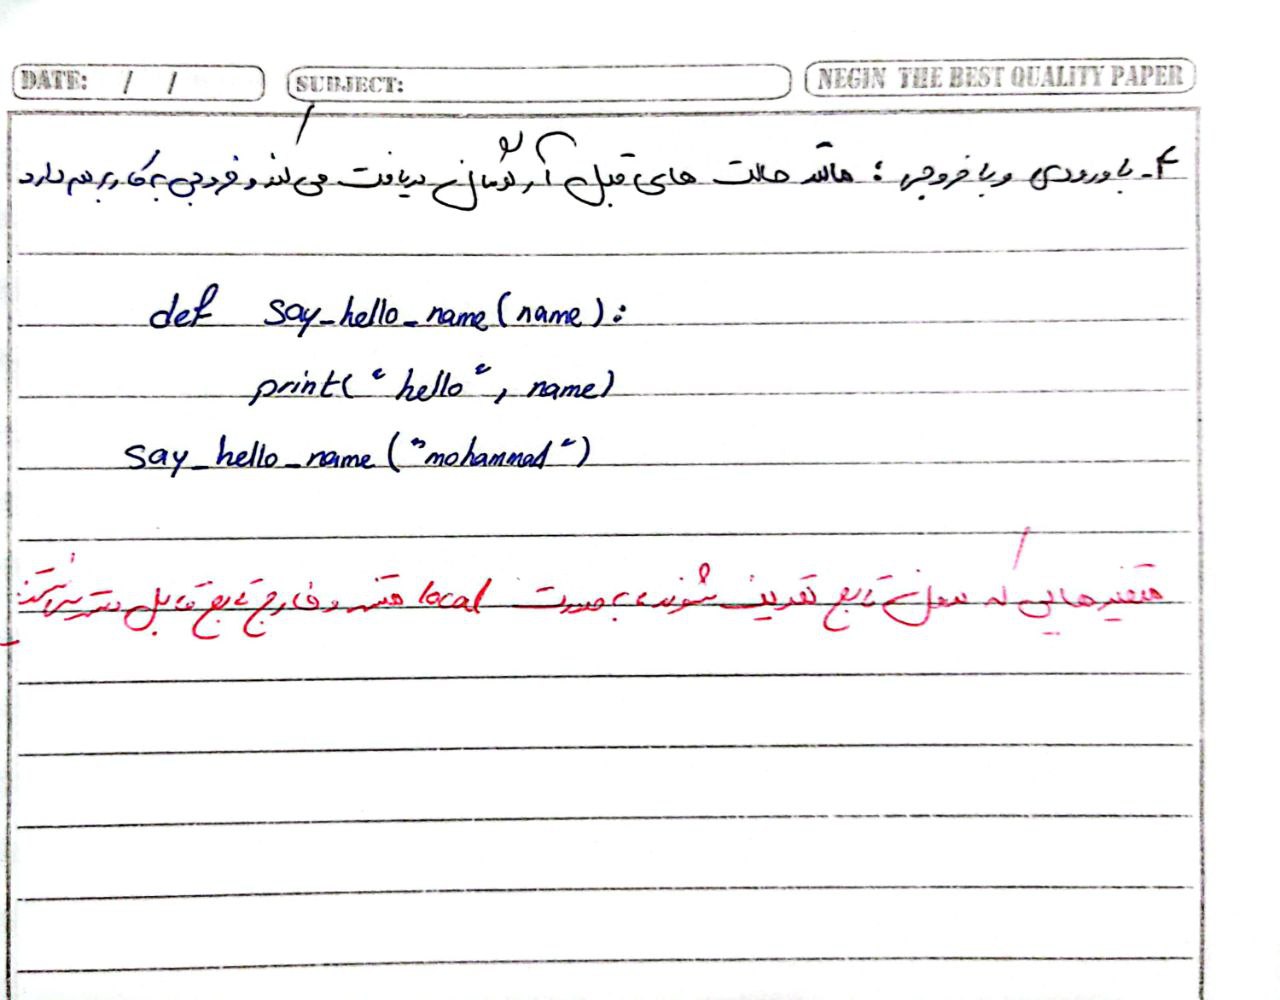 DATE: / /
SUBJECT:
NEGIN THE BEST QUALITY PAPER
۴- با ورودی و با خروجی : مانند حالت های قبل آرگومان دریافت می کند و خروجی به کاربر هم دارد
def say_hello_name(name):
print("hello", name)
say_hello_name("mohammad")
متغیرهایی که داخل تابع تعریف شوند، به صورت local هستند و خارج تابع قابل دسترسی